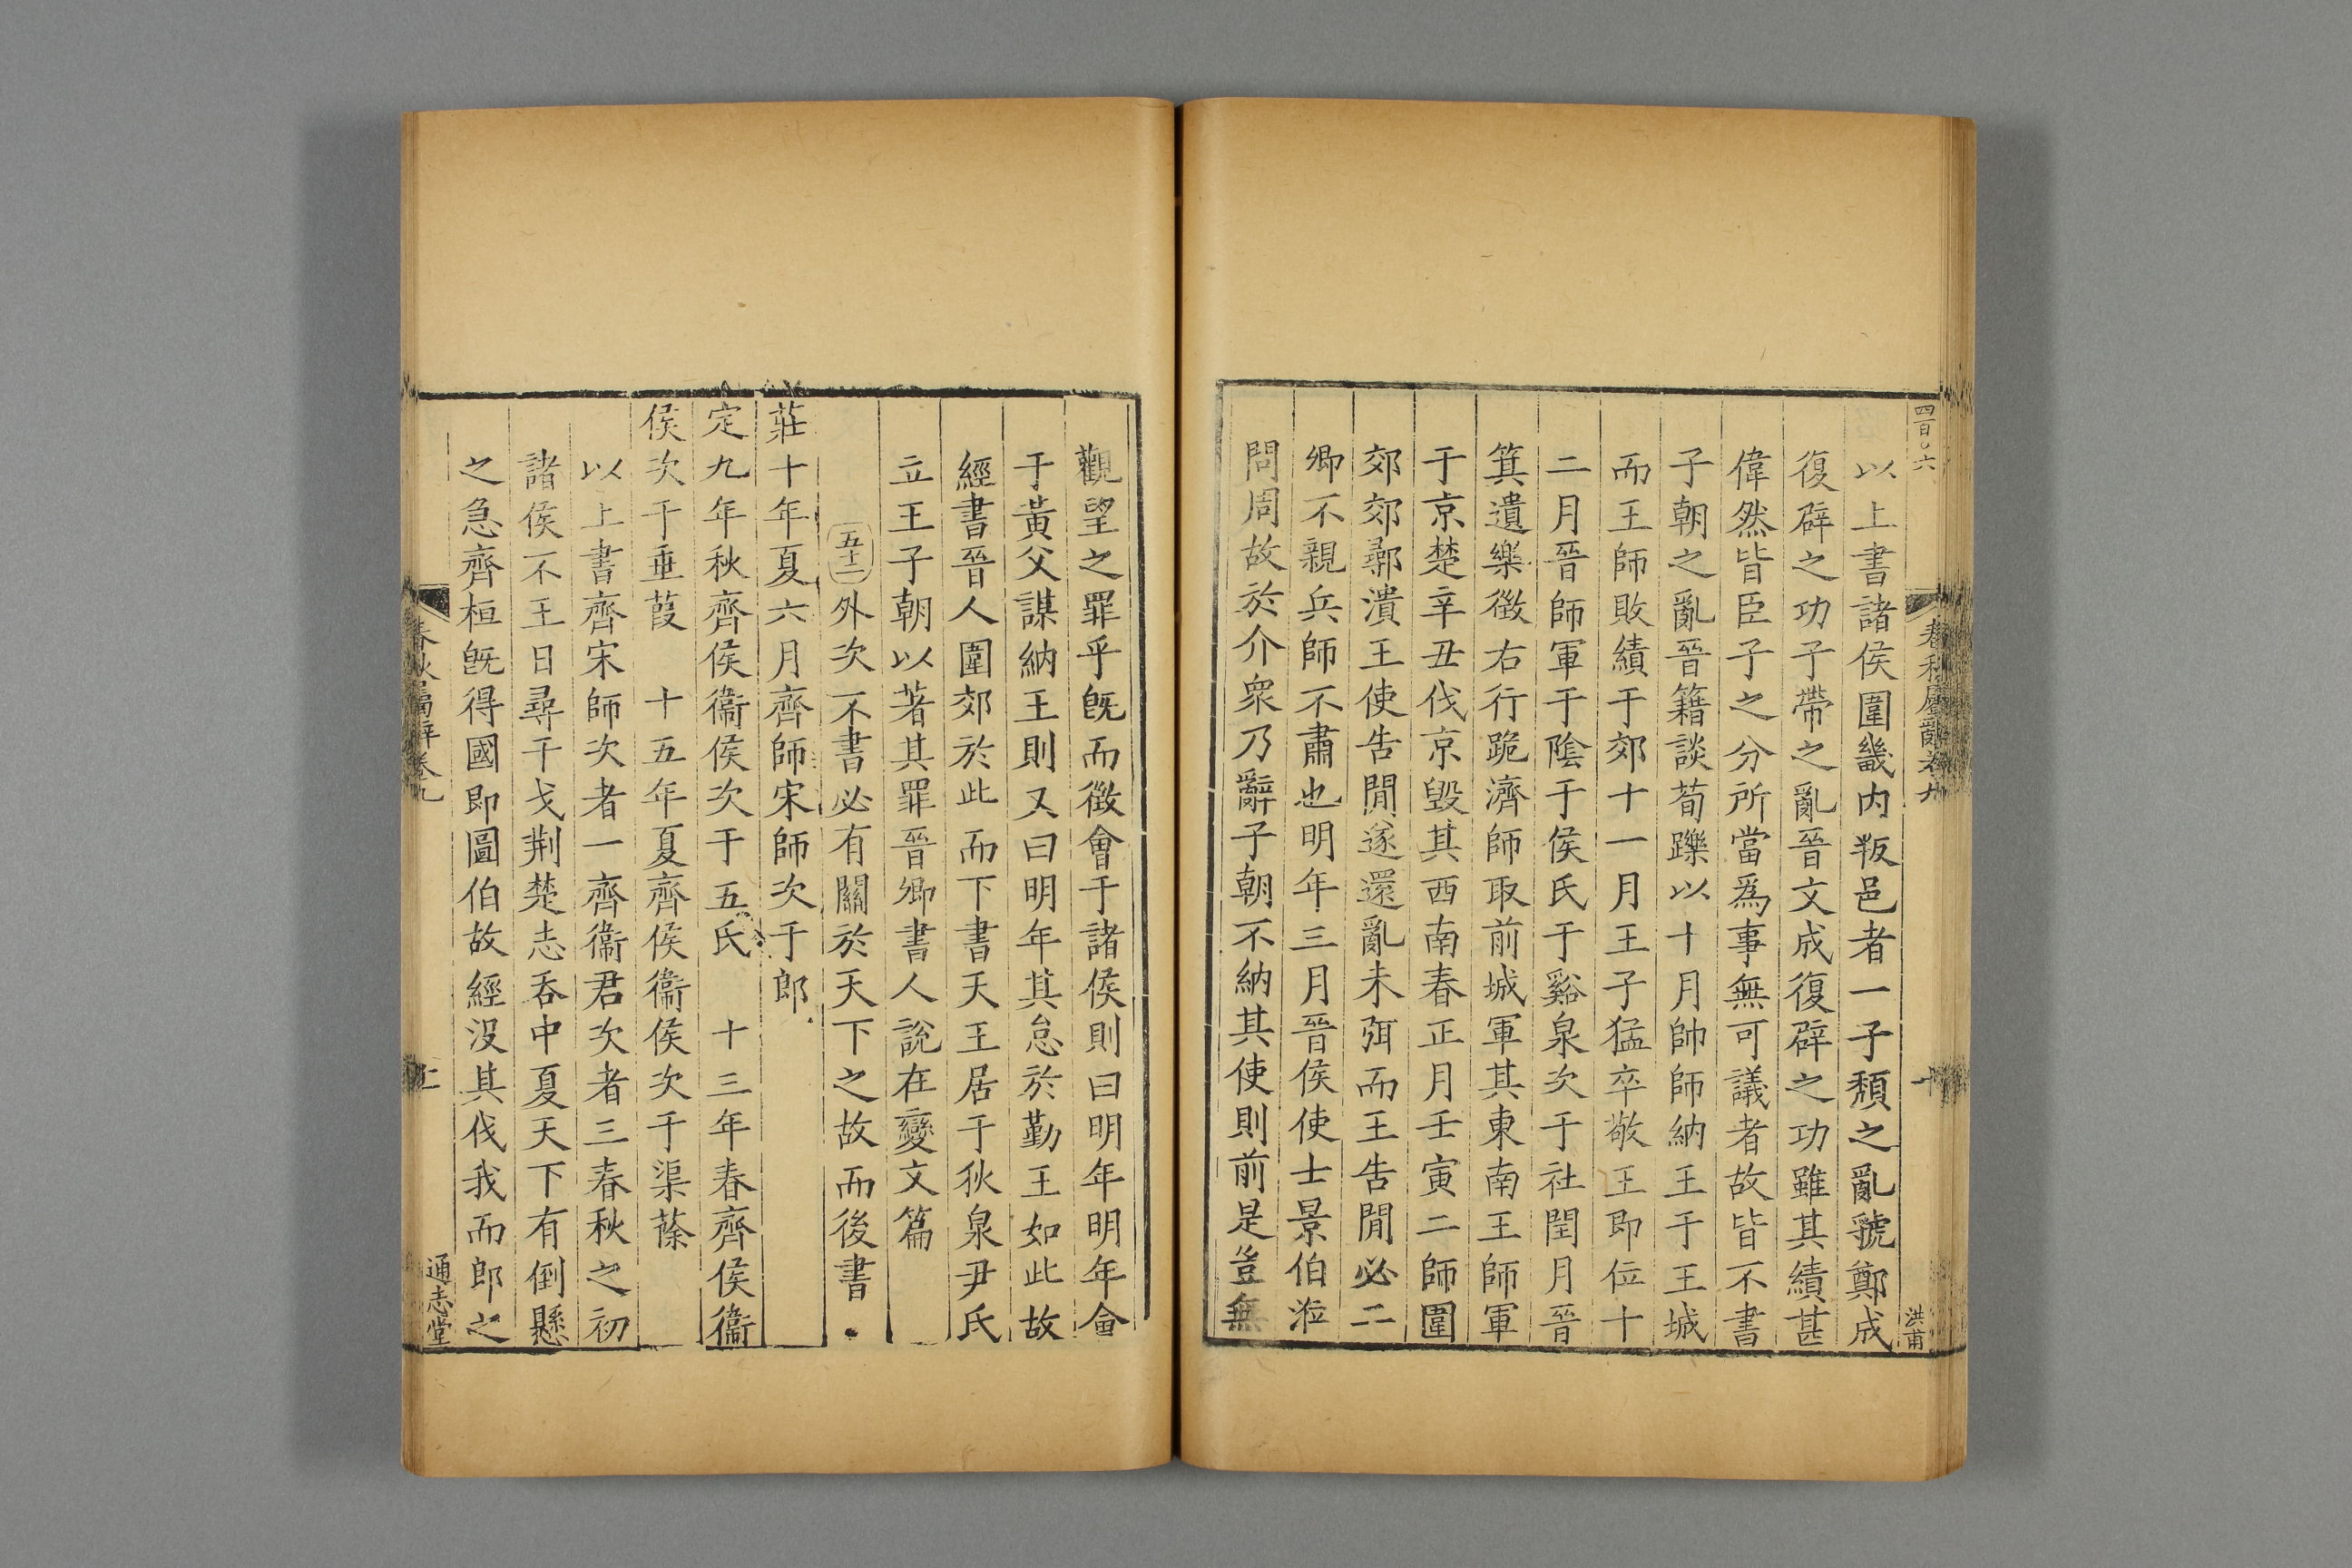 四百六
春秋屬辭卷九
十
洪甫
以上書諸侯圍畿內叛邑者一子頹之亂虢鄭成
復辟之功子帶之亂晉文成復辟之功雖其績甚
偉然皆臣子之分所當爲事無可議者故皆不書
子朝之亂晉籍談荀躒以十月帥師納王于王城
而王師敗績于郊十一月王子猛卒敬王即位十
二月晉師軍于陰于侯氏于谿泉次于社閏月晉
箕遺樂徵右行跪濟師取前城軍其東南王師軍
于京楚辛丑伐京毀其西南春正月壬寅二師圍
郊郊鄩潰王使告閒遂還亂未弭而王告閒必二
卿不親兵師不肅也明年三月晉侯使士景伯涖
問周故於介衆乃辭子朝不納其使則前是豈無
觀望之罪乎旣而徵會于諸侯則曰明年明年會
于黃父謀納王則又曰明年其怠於勤王如此故
經書晉人圍郊於此而下書天王居于狄泉尹氏
立王子朝以著其罪晉卿書人說在變文篇
五十二外次不書必有關於天下之故而後書
莊十年夏六月齊師宋師次于郎
定九年秋齊侯衞侯次于五氏 十三年春齊侯衞
侯次于垂葭 十五年夏齊侯衞侯次于渠蒢
以上書齊宋師次者一齊衞君次者三春秋之初
諸侯不王日尋干戈荆楚志吞中夏天下有倒懸
之急齊桓旣得國即圖伯故經沒其伐我而郎之
春秋屬辭卷九
通志堂